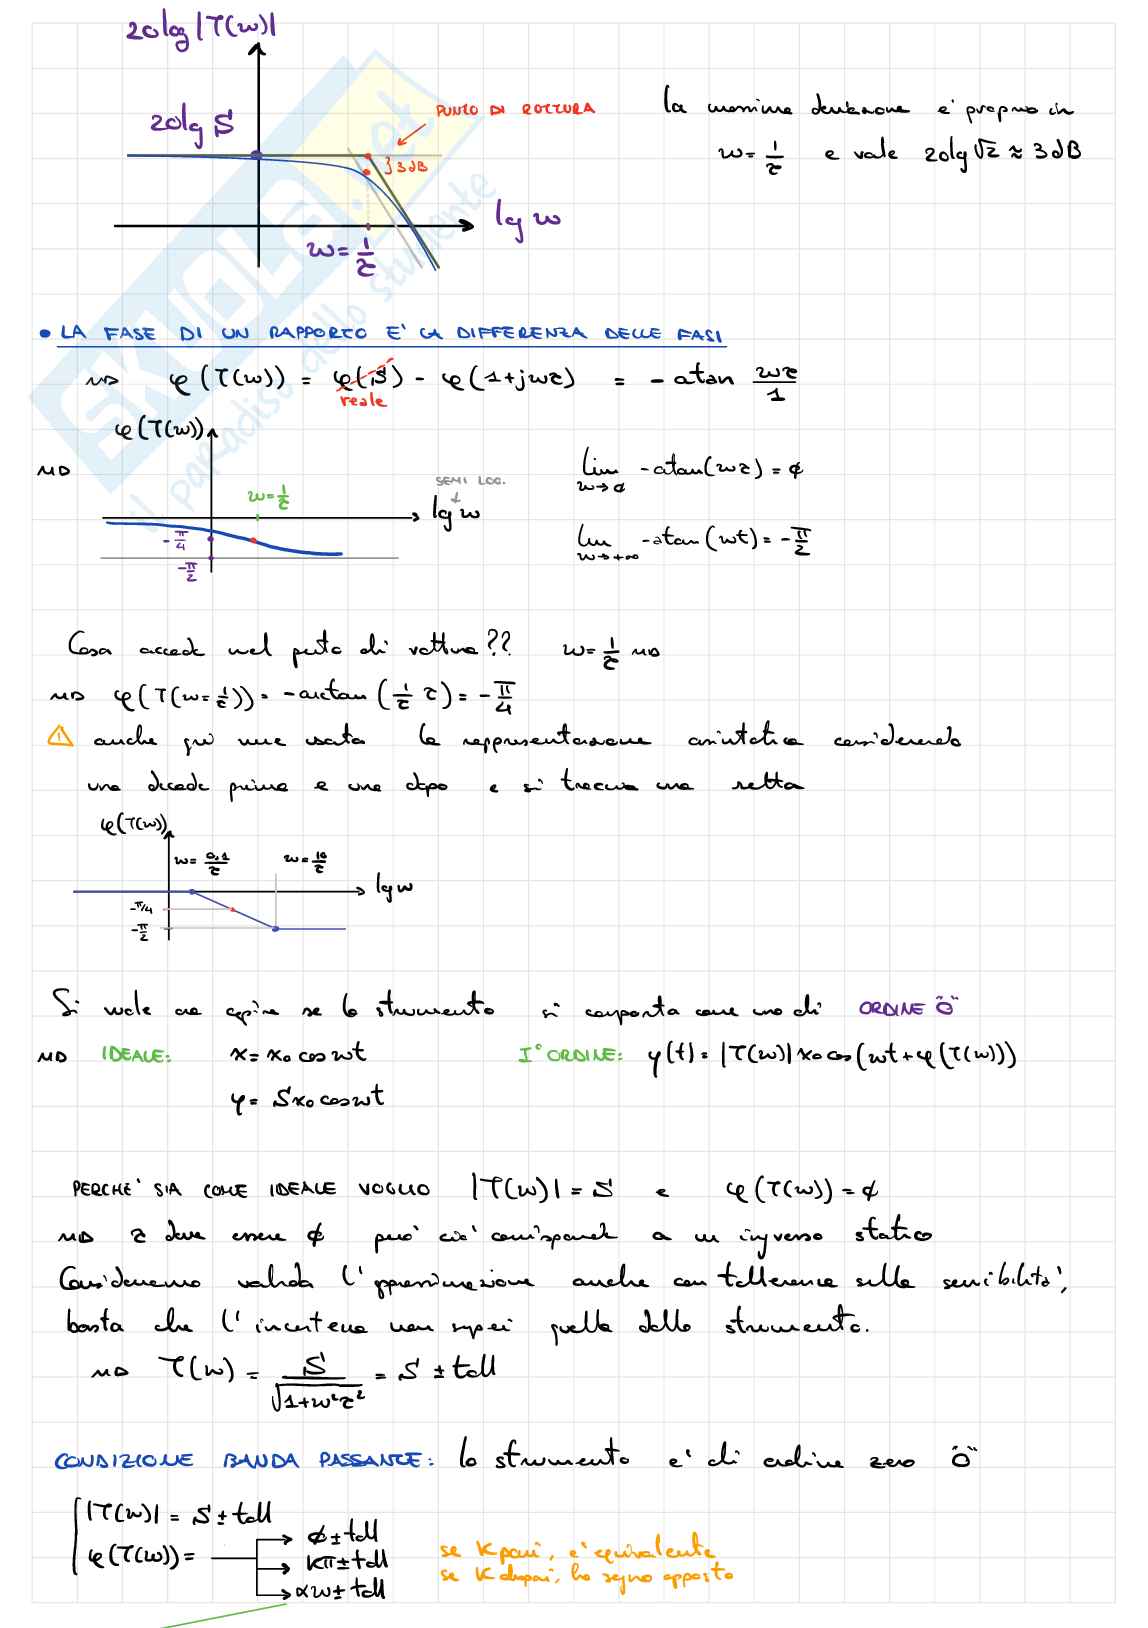 20log |T(ω)|
20lg S
PUNTO DI ROTTURA
}3dB
lg ω
ω = 1/τ
la massima deviazione e' proprio in
ω = 1/τ e vale 20lg √2 ≈ 3dB
• LA FASE DI UN RAPPORTO E' LA DIFFERENZA DELLE FASI
φ(T(ω)) = φ(S) - φ(1+jωτ) = -atan ωτ/1
reale
φ(T(ω))
SEMI LOG.
ω = 1/τ
lg ω
-π/4
-π/2
lim ω→∅ -atan(ωτ) = ∅
lim ω→+∞ -atan(ωt) = -π/2
Cosa accade nel punto di rottura?? ω = 1/τ
φ(T(ω = 1/τ)) = -arctan (1/τ τ) = -π/4
anche qui viene usata la rappresentazione asintotica considerando
una decade prima e una dopo e si traccia una retta
φ(T(ω))
ω = 0,1/τ ω = 10/τ
lg ω
-π/4
-π/2
Si vuole ora capire se lo strumento si comporta come uno di ORDINE "0"
IDEALE: x = x₀ cos ωt I° ORDINE: y(t) = |T(ω)| x₀ cos(ωt + φ(T(ω)))
y = S x₀ cos ωt
PERCHE' SIA COME IDEALE VOGLIO |T(ω)| = S e φ(T(ω)) = ∅
τ deve essere ∅ però ciò corrisponde a un ingresso statico
Consideriamo valida l'approssimazione anche con tolleranza sulla sensibilità,
basta che l'incertezza non superi quella dello strumento.
T(ω) = S/√(1+ω²τ²) = S ± toll
CONDIZIONE BANDA PASSANTE: lo strumento e' di ordine zero "0"
|T(ω)| = S ± toll
φ(T(ω)) =
∅ ± toll
kπ ± toll
αω ± toll
se K pari, e' equivalente
se K dispari, ha segno opposto
SKUOLA.net
il paradiso dello studente